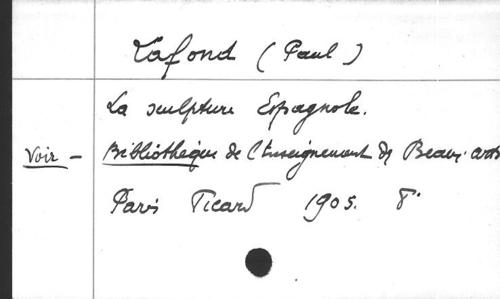 Lafond (Paul)
La sculpture Espagnole.
Voir - Bibliothèque de l'Enseignement des Beaux-arts
Paris Picard 1905. 8°.